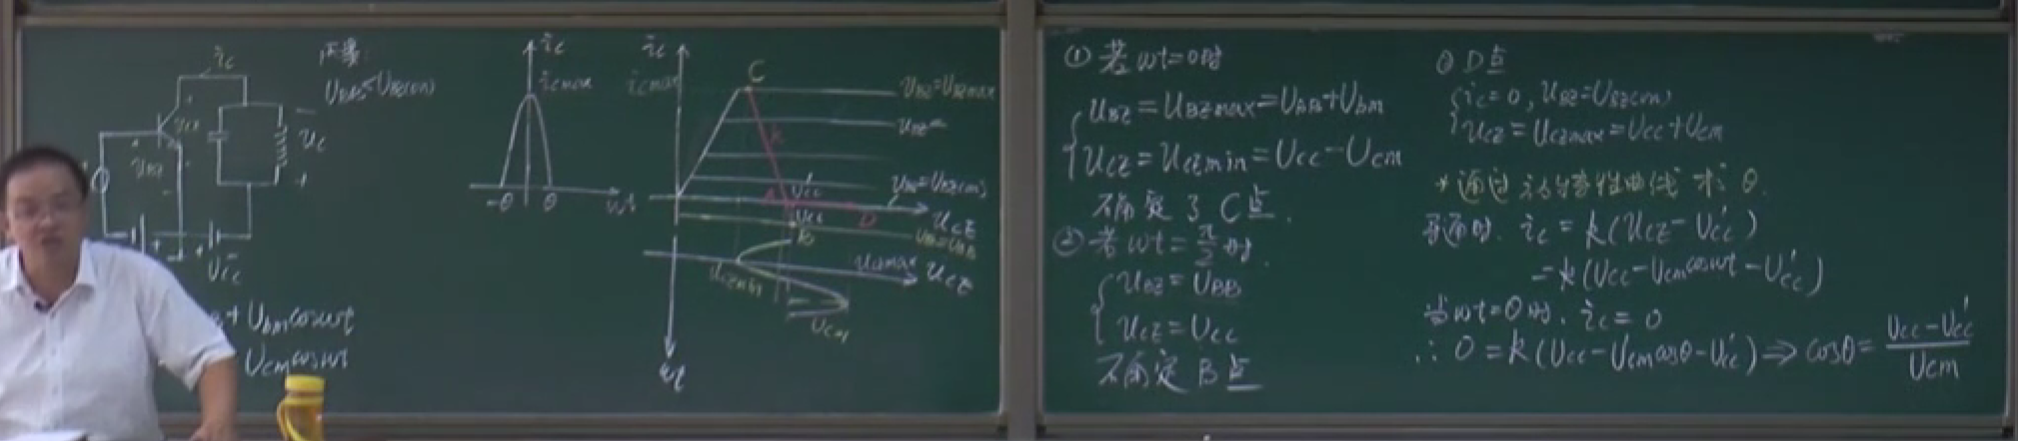 i_c
U_BB<U_BE(on)
u_c
u_BE
V_CC
+U_bm cosωt
U_cm cosωt
i_c
i_cmax
-θ θ ωt
i_c
i_cmax
C
u_BE=u_BEmax
u_BE=U_BE(on)
A V'_CC
V_CC
D
u_CE
B
u_CEmin
u_CEmax
u_CE
U_cm
ωt
①若ωt=0时
u_BE=u_BEmax=U_BB+U_bm
u_CE=u_CEmin=U_CC-U_cm
确定了C点.
②若ωt=π/2时.
u_BE=U_BB
u_CE=U_CC
确定B点
③D点
i_c=0, u_BE=U_BE(on)
u_CE=u_CEmax=U_CC+U_cm
*通过动特性曲线求θ.
导通时. i_c=k(u_CE-U'_CC)
=k(U_CC-U_cm cosωt-U'_CC)
当ωt=θ时, i_c=0
∴0=k(U_CC-U_cm cosθ-U'_CC)⇒cosθ=(U_CC-U'_CC)/U_cm